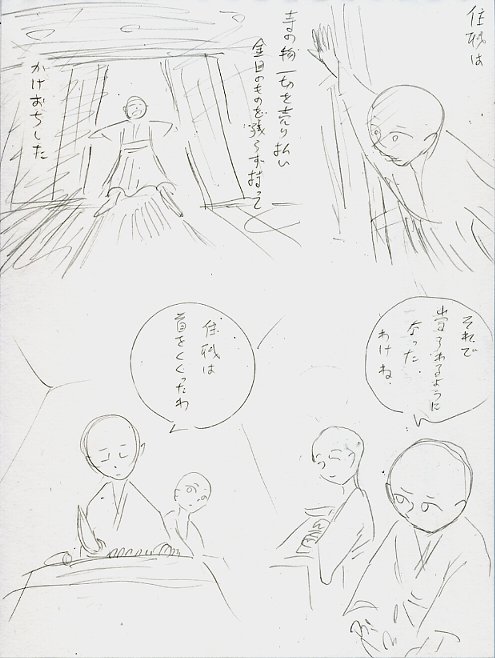 住職は
寺の物一切を売り払い
金目のものを残らず持って
かけおちした
それで
なった
わけね
住職は
首をくくったわ